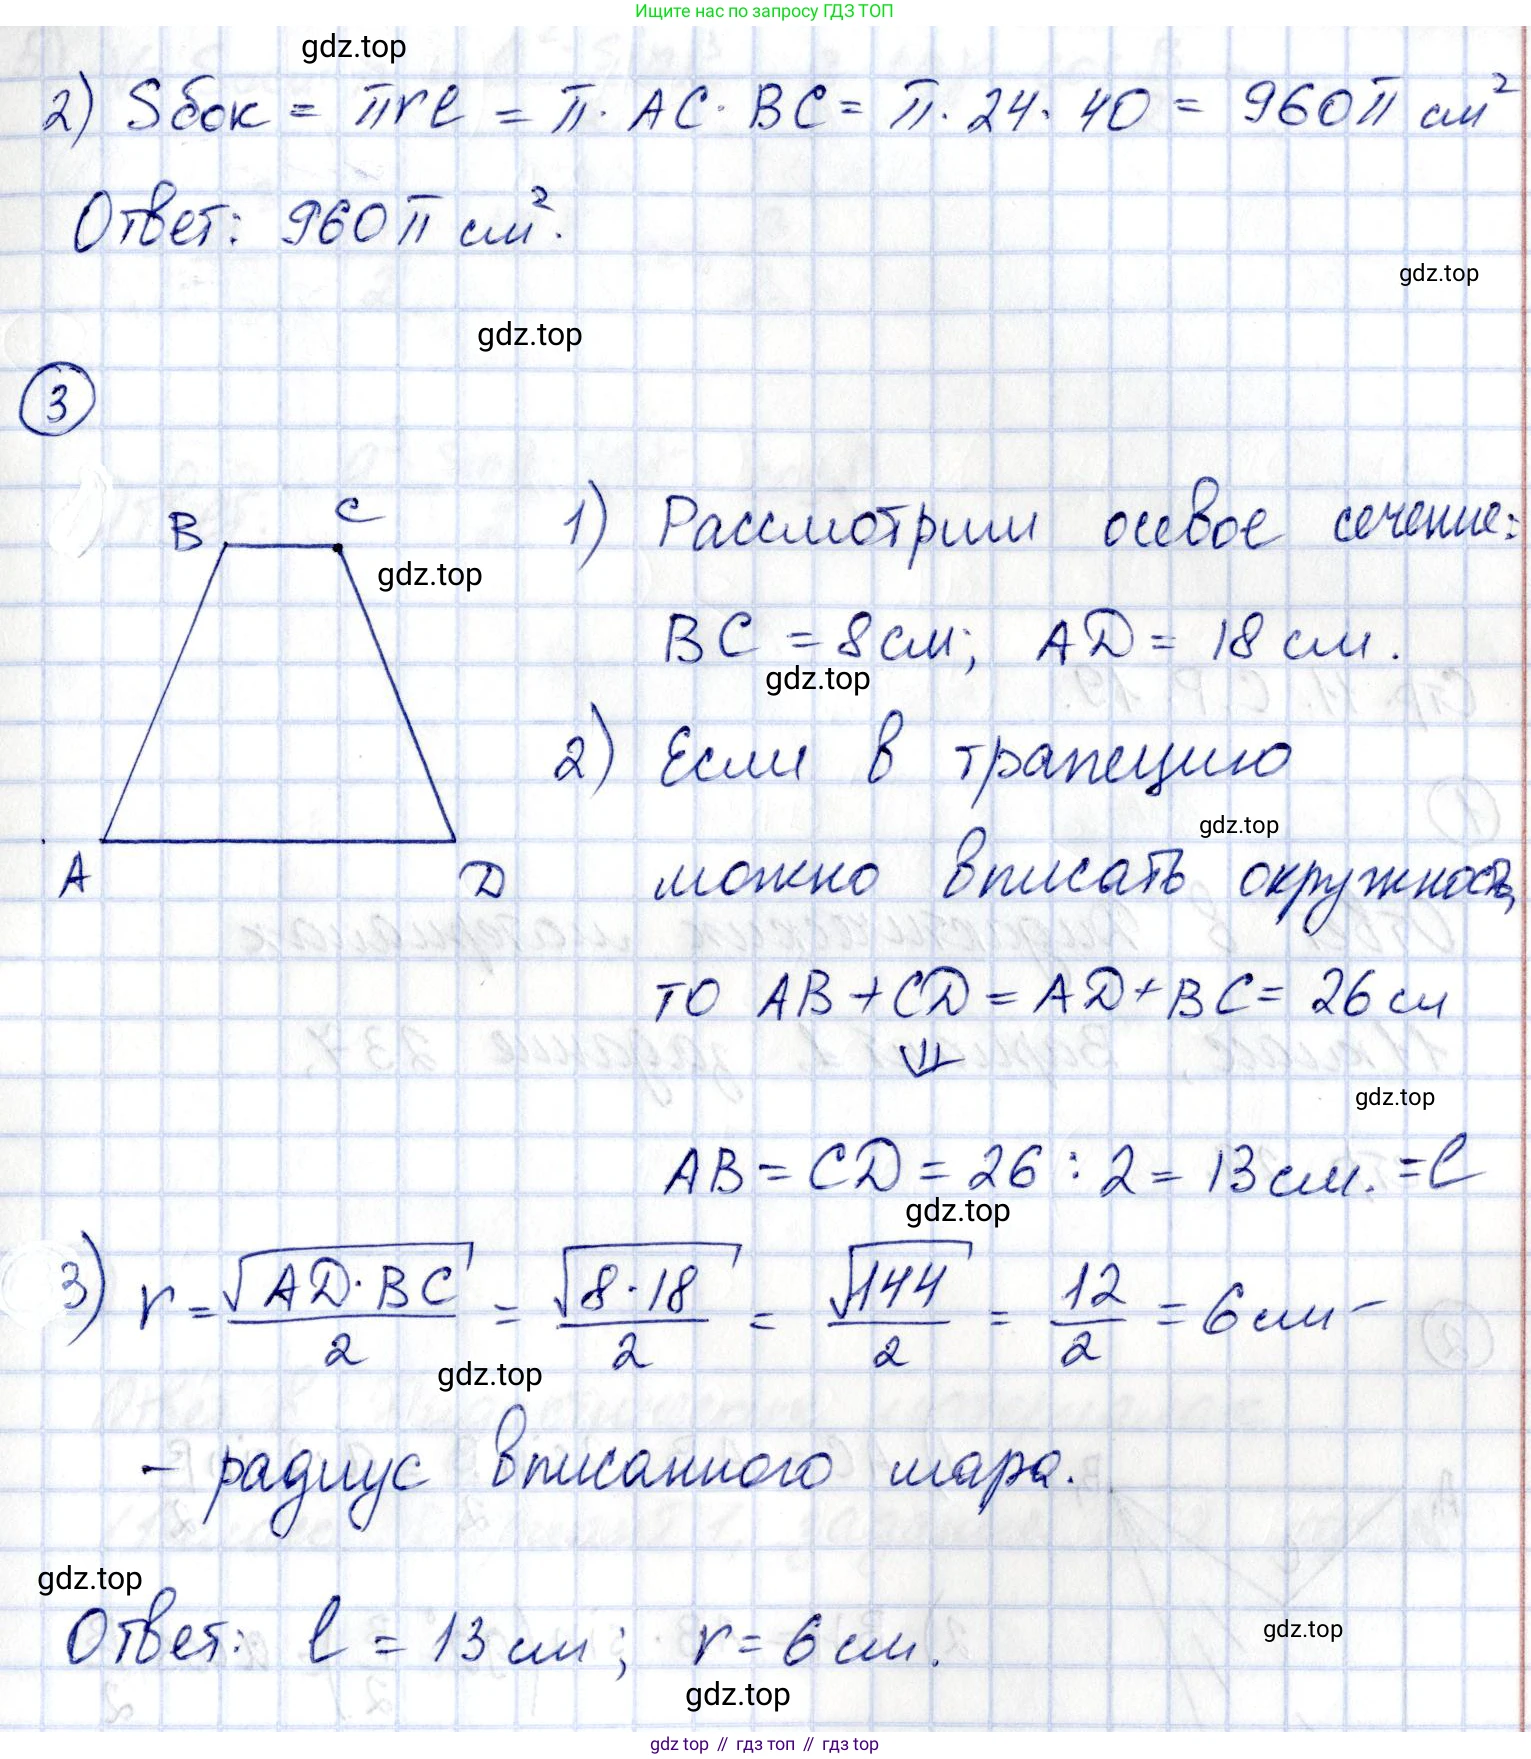 Ищите нас по запросу ГДЗ ТОП
gdz.top
2) Sбок = πrl = π · AC · BC = π · 24 · 40 = 960π см²
Ответ: 960π см².
gdz.top
gdz.top
3
B C
gdz.top
A D
1) Рассмотрим осевое сечение:
BC = 8 см; AD = 18 см.
gdz.top
2) Если в трапецию
gdz.top
можно вписать окружность,
то AB + CD = AD + BC = 26 см
⇓
gdz.top
AB = CD = 26 : 2 = 13 см. = l
gdz.top
3) r = √(AD · BC)/2 = √(8 · 18)/2 = √144/2 = 12/2 = 6 см –
gdz.top
– радиус вписанного шара.
gdz.top
Ответ: l = 13 см; r = 6 см.
gdz.top
gdz.top
gdz top // гдз топ // гдз top